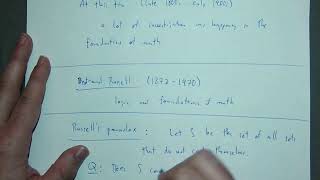 At this time (late 1800s - early 1900s)
a lot of investigation was happening in the
foundations of math
Bertrand Russell : (1872 - 1970)
logic and foundations of math
Russell's paradox : Let S be the set of all sets
that do not themselves.
Q: Does S